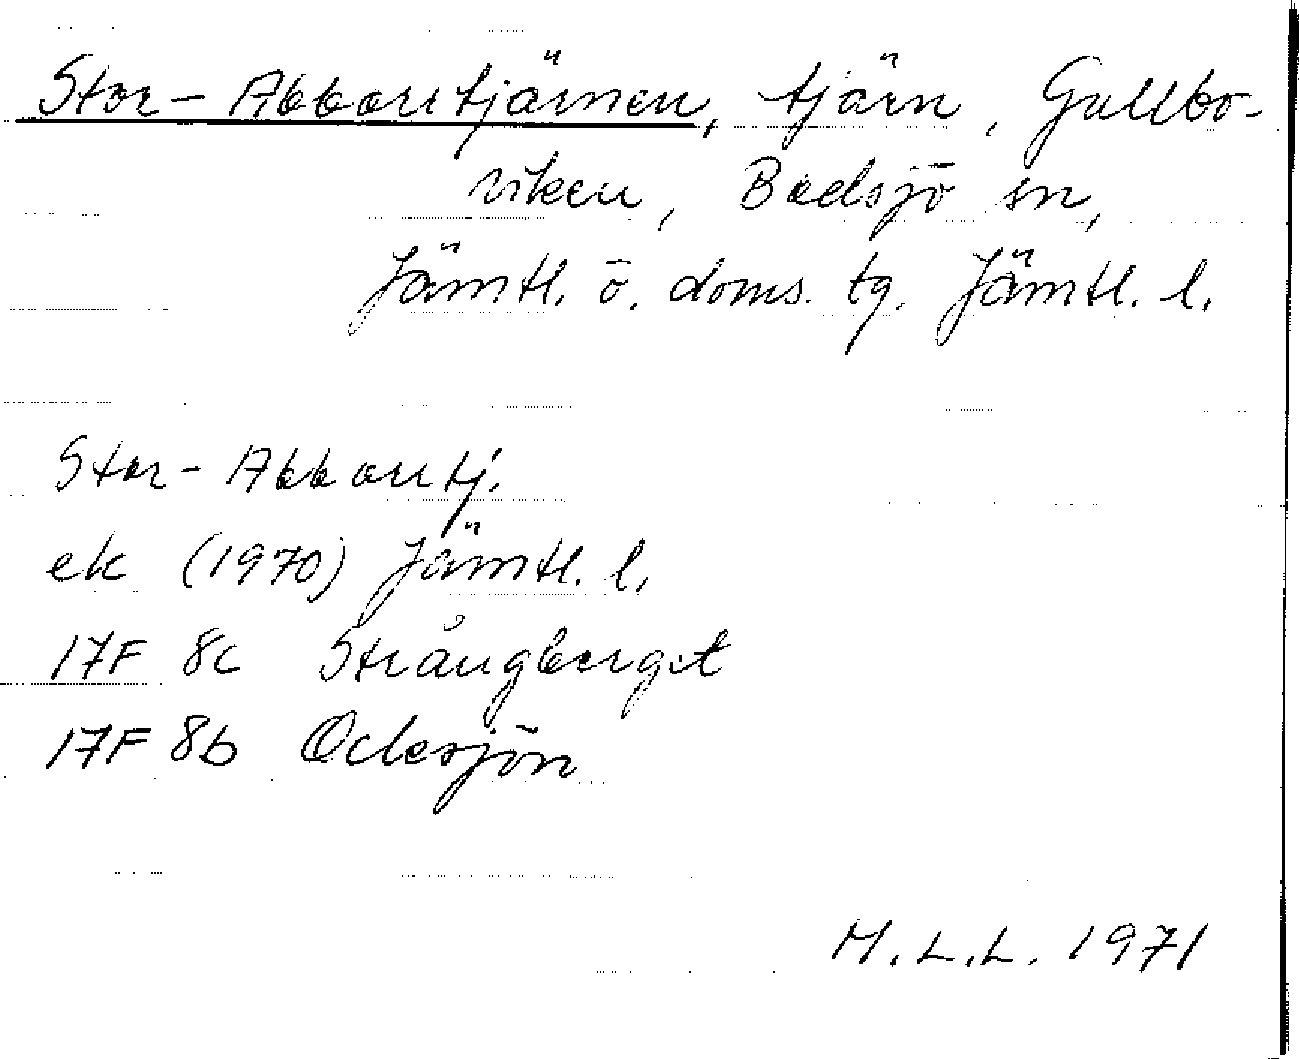 Stor-Abborrtjärnen, tjärn, Gullbo-
viken, Bodsjö sn,
Jämtl. ö. doms. tg. Jämtl. l.
Stor-Abborrtj.
ek (1970) Jämtl. l.
17F 8c Strångberget
17F 8b Ocksjön
M.L.L. 1971